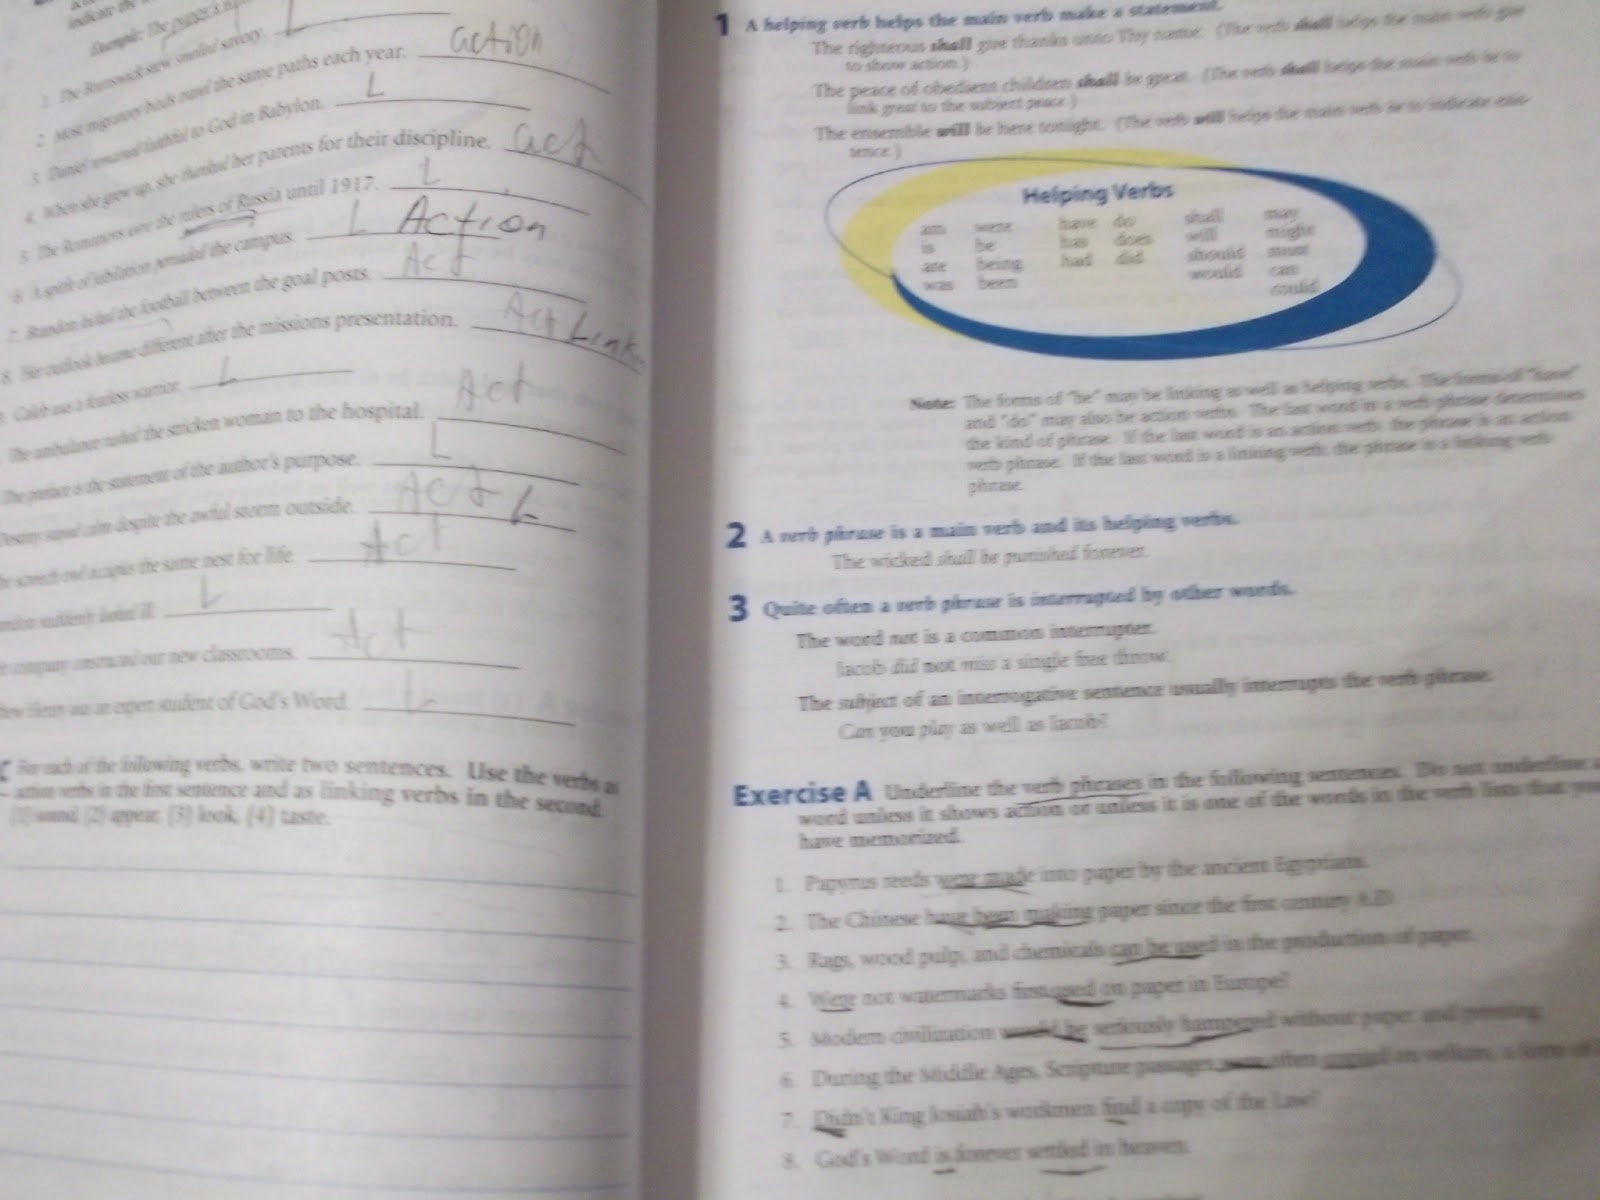 indicate the
Example: The paper's
1. The Brunswick stew smelled savory. L
2. Most migratory birds travel the same paths each year. action
3. Daniel remained faithful to God in Babylon. L
4. When she grew up, she thanked her parents for their discipline. act
5. The Romanovs were the rulers of Russia until 1917. L
6. A spirit of jubilation pervaded the campus. L Action
7. Brandon kicked the football between the goal posts. Act
8. Her outlook became different after the missions presentation. Act Link
Caleb was a fearless warrior. L
The ambulance rushed the stricken woman to the hospital. Act
The preface is the statement of the author's purpose. L
calm despite the awful storm outside. Act L
screech owl occupies the same nest for life. Act
suddenly looked ill. L
company constructed our new classrooms. Act
Henry was an expert student of God's Word. L
C For each of the following verbs, write two sentences. Use the verbs as
action verbs in the first sentence and as linking verbs in the second.
(2) appear, (3) look, (4) taste.
1 A helping verb helps the main verb make a statement.
The righteous shall give thanks unto Thy name. (The verb shall helps the main verb give
to show action.)
The peace of obedient children shall be great. (The verb shall helps the main verb be to
link great to the subject peace.)
The ensemble will be here tonight. (The verb will helps the main verb be to indicate exis-
tence.)
Helping Verbs
am were have do shall may
is be has does will might
are being had did should must
was been would can
could
Note: The forms of "be" may be linking as well as helping verbs. The forms of "have"
and "do" may also be action verbs. The last word in a verb phrase determines
the kind of phrase. If the last word is an action verb, the phrase is an action
verb phrase. If the last word is a linking verb, the phrase is a linking verb
phrase.
2 A verb phrase is a main verb and its helping verbs.
The wicked shall be punished forever.
3 Quite often a verb phrase is interrupted by other words.
The word not is a common interrupter.
Jacob did not miss a single free throw.
The subject of an interrogative sentence usually interrupts the verb phrase.
Can you play as well as Jacob?
Exercise A Underline the verb phrases in the following sentences. Do not underline a
word unless it shows action or unless it is one of the words in the verb lists that you
have memorized.
1. Papyrus reeds were made into paper by the ancient Egyptians.
2. The Chinese have been making paper since the first century A.D.
3. Rags, wood pulp, and chemicals can be used in the production of paper.
4. Were not watermarks first used on paper in Europe?
5. Modern civilization would be seriously hampered without paper and printing.
6. During the Middle Ages, Scripture passages were often copied on vellum, a form of
7. Didn't King Josiah's workmen find a copy of the Law?
8. God's Word is forever settled in heaven.